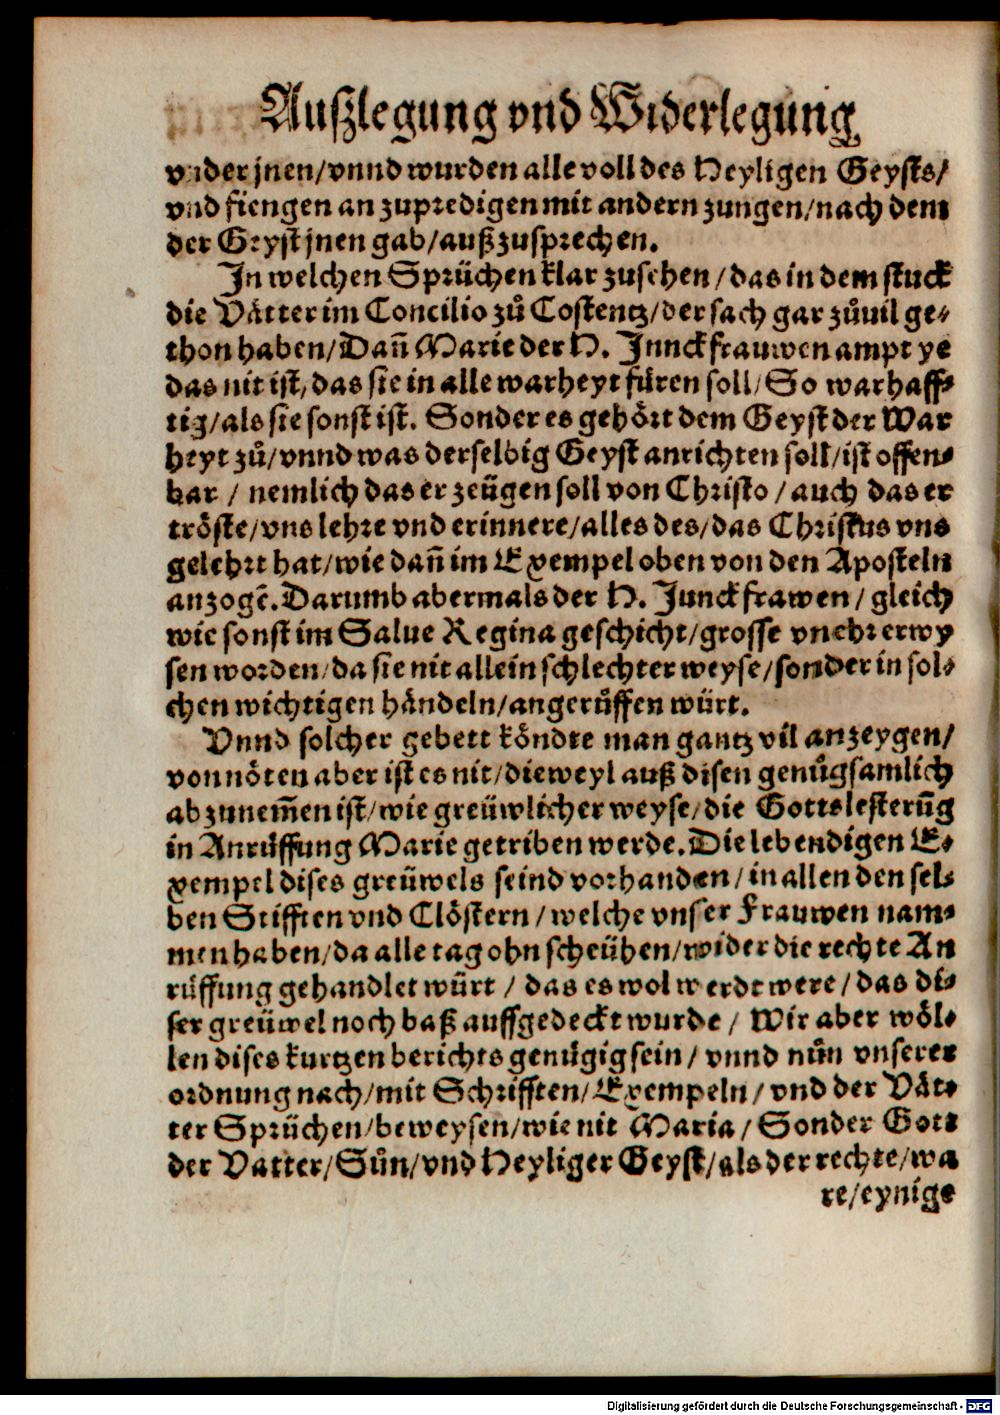 Außlegung vnd Widerlegung
vnder jnen/vnnd wurden alle voll des Heyligen Geysts/
vnd fiengen an zupredigen mit andern zungen/nach dem
der Geyst jnen gab/außzusprechen.
In welchen Sprüchen klar zusehen/das in dem stuck
die Vätter im Concilio zů Costentz/der sach gar zůuil ge-
thon haben/Dañ Marie der H. Jnnckfrauwen ampt ye
das nit ist/das sie in alle warheyt füren soll/So warhaff-
tig/als sie sonst ist. Sonder es gehört dem Geyst der War
heyt zů/vnnd was derselbig Geyst anrichten soll/ist offen-
bar/nemlich das er zeügen soll von Christo/auch das er
tröste/vns lehre vnd erinnere/alles des/das Christus vns
gelehrt hat/wie dañ im Exempel oben von den Aposteln
anzogẽ. Darumb abermals der H. Junckfrawen/gleich
wie sonst im Salue Regina geschicht/grosse vnehr erwy
sen worden/da sie nit allein schlechter weyse/sonder in sol-
chen wichtigen händeln/angerůffen würt.
Vnnd solcher gebett köndte man gantz vil anzeygen/
vonnöten aber ist es nit/dieweyl auß disen genůgsamlich
abzunem̃en ist/wie greüwlicher weyse/die Gottslesterũg
in Anrůffung Marie getriben werde. Die lebendigen E-
xempel dises greüwels seind vorhanden/in allen den sel-
ben Stifften vnd Clöstern/welche vnser Frauwen nam-
men haben/da alle tag ohn scheühen/wider die rechte An
rüffung gehandlet würt/das es wol werdt were/das di-
ser greüwel noch baß auffgedeckt wurde/Wir aber wöl-
len dises kurtzen berichts genůgig sein/vnnd nůn vnserer
ordnung nach/mit Schrifften/Exempeln/vnd der Vät-
ter Sprüchen/beweysen/wie nit Maria/Sonder Gott
der Vatter/Sůn/vnd Heyliger Geyst/als der rechte/wa
re/eynige
Digitalisierung gefördert durch die Deutsche Forschungsgemeinschaft - DFG